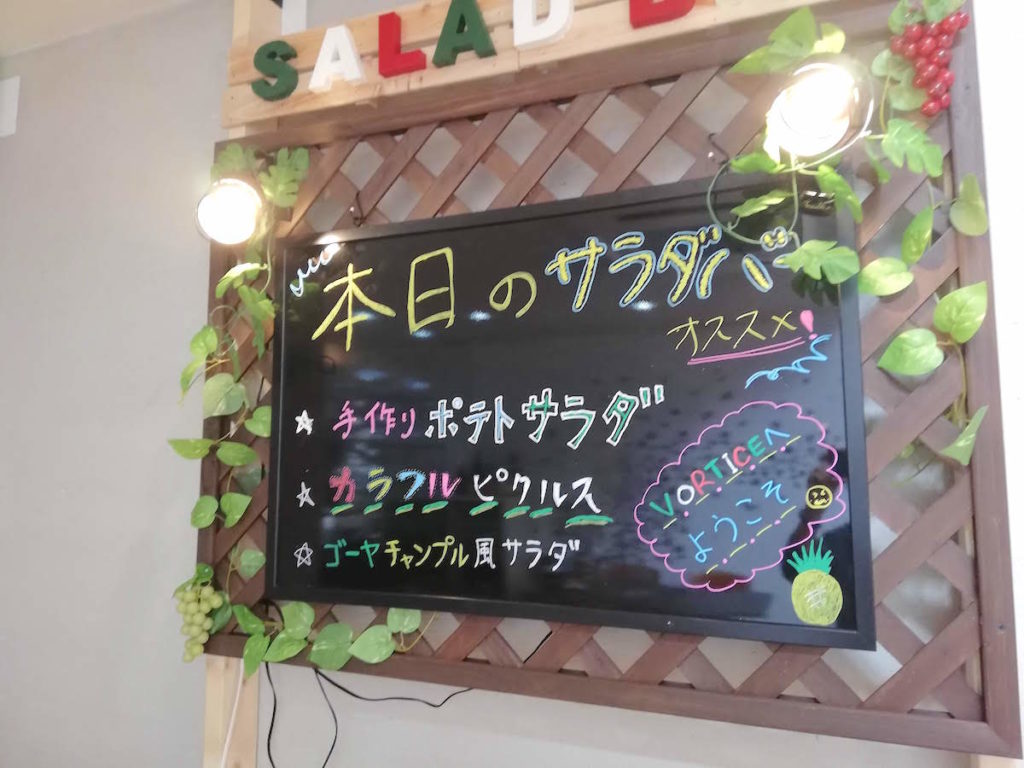 SALAD B
本日のサラダバー
オススメ!
☆ 手作りポテトサラダ
☆ カラフルピクルス
☆ ゴーヤチャンプル風サラダ
VORTICEへ
ようこそ